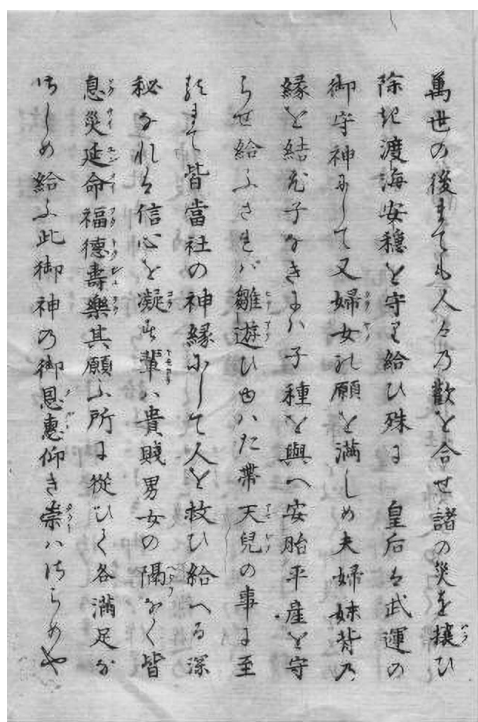 萬世の後までも人々乃歡を合せ諸の災を攘ひ
除き渡海安穏を守り給ひ殊に　皇后は武運の
御守神にして又婦女の願を満しめ夫婦妹背乃
縁を結び子なきには子種を與へ安胎平産を守
らせ給ふされバ雛遊ひ由はた帯天兒の事に至
るまで皆當社の神縁にして人を救ひ給へる深
秘なれは信心を凝す輩ハ貴賤男女の隔なく皆
息災延命福徳壽樂其願ふ所に従ひて各満足な
さしめ給ふ此御神乃御恩惠仰き崇ハさらめや